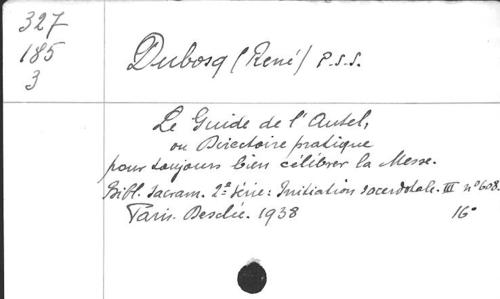 327
185
3
Dubosq (René) P.S.S.
Le Guide de l'Autel,
ou Directoire pratique
pour toujours bien célébrer la Messe.
Bibl. Sacram. 2e Série: Initiation sacerdotale. III n° 608.
Paris. Desclée. 1938 16°